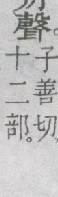 聲。
子善切
十二部。